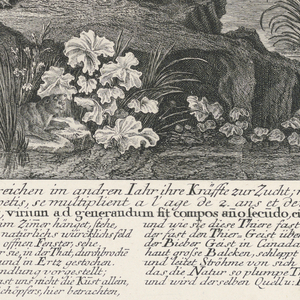 reichen im andren Iahr ihre Kräffte zur Zucht,
petis, se multiplient a l'age de 2. ans et de
, virium ad generandum fit compos año secúdo, e
im Zimer hänget, stehe,
natürlich s' würckliche feld
offnen Fenster, sehe,
sie, in der That, durch
und in Ertz getochen.
ndlung vorgestellt;
uns nicht die Kúst allein,
chöpfers, hier betrachten,
und wie sie diese Thiere fast
der fast den Thier Geist
der Bieber Geist in Canada
haut grosse Balcken, schleppt
und leitet Ströhme von sich.
das die Natur so plumpe T
und wird derselben Quell u.